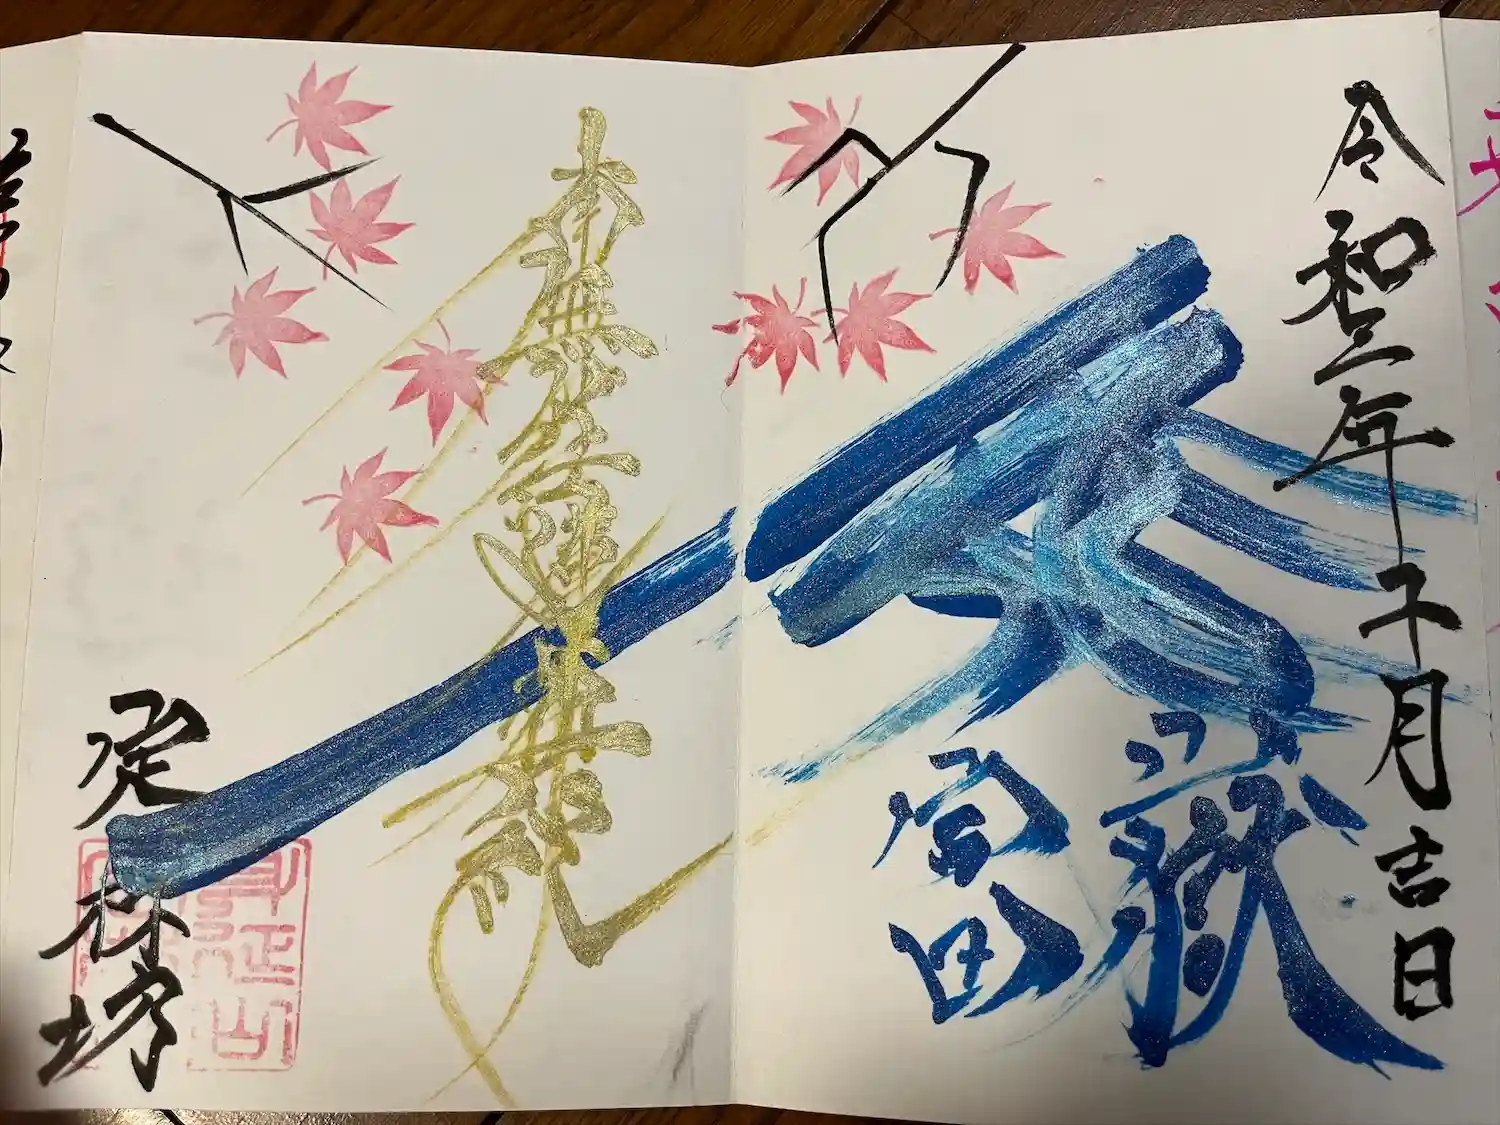 令和三年子月吉日
富嶽
南無妙法蓮華経
定林坊
身延山